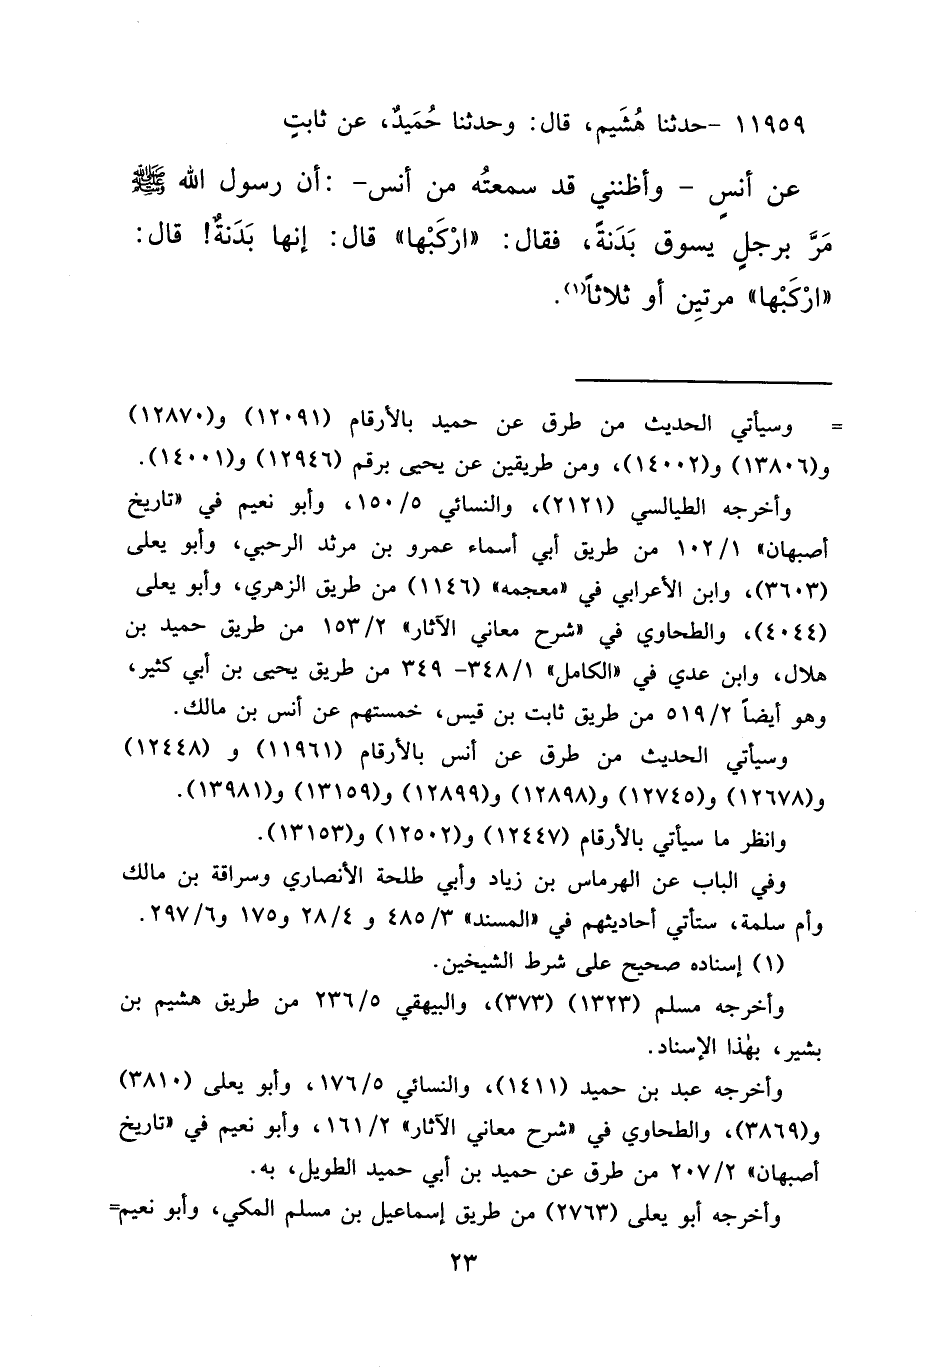 ١١٩٥٩ -حدثنا هُشَيم، قال: وحدثنا حُمَيدٌ، عن ثابتٍ
عن أنسٍ - وأظنني قد سمعتُه من أنس- :أن رسول الله ﷺ
مَرَّ برجلٍ يسوق بَدَنةً، فقال: «ارْكَبْها» قال: إنها بَدَنةٌ! قال:
«ارْكَبْها» مرتينِ أو ثلاثاً(١).
= وسيأتي الحديث من طرق عن حميد بالأرقام (١٢٠٩١) و(١٢٨٧٠)
و(١٣٨٠٦) و(١٤٠٠٢)، ومن طريقين عن يحيى برقم (١٢٩٤٦) و(١٤٠٠١).
وأخرجه الطيالسي (٢١٢١)، والنسائي ١٥٠/٥، وأبو نعيم في «تاريخ
أصبهان» ١٠٢/١ من طريق أبي أسماء عمرو بن مرثد الرحبي، وأبو يعلى
(٣٦٠٣)، وابن الأعرابي في «معجمه» (١١٤٦) من طريق الزهري، وأبو يعلى
(٤٠٤٤)، والطحاوي في «شرح معاني الآثار» ١٥٣/٢ من طريق حميد بن
هلال، وابن عدي في «الكامل» ٣٤٨/١- ٣٤٩ من طريق يحيى بن أبي كثير،
وهو أيضاً ٥١٩/٢ من طريق ثابت بن قيس، خمستهم عن أنس بن مالك.
وسيأتي الحديث من طرق عن أنس بالأرقام (١١٩٦١) و (١٢٤٤٨)
و(١٢٦٧٨) و(١٢٧٤٥) و(١٢٨٩٨) و(١٢٨٩٩) و(١٣١٥٩) و(١٣٩٨١).
وانظر ما سيأتي بالأرقام (١٢٤٤٧) و(١٢٥٠٢) و(١٣١٥٣).
وفي الباب عن الهرماس بن زياد وأبي طلحة الأنصاري وسراقة بن مالك
وأم سلمة، ستأتي أحاديثهم في «المسند» ٤٨٥/٣ و ٢٨/٤ و١٧٥ و٢٩٧/٦.
(١) إسناده صحيح على شرط الشيخين.
وأخرجه مسلم (١٣٢٣) (٣٧٣)، والبيهقي ٢٣٦/٥ من طريق هشيم بن
بشير، بهٰذا الإسناد.
وأخرجه عبد بن حميد (١٤١١)، والنسائي ١٧٦/٥، وأبو يعلى (٣٨١٠)
و(٣٨٦٩)، والطحاوي في «شرح معاني الآثار» ١٦١/٢، وأبو نعيم في «تاريخ
أصبهان» ٢٠٧/٢ من طرق عن حميد بن أبي حميد الطويل، به.
وأخرجه أبو يعلى (٢٧٦٣) من طريق إسماعيل بن مسلم المكي، وأبو نعيم=
٢٣